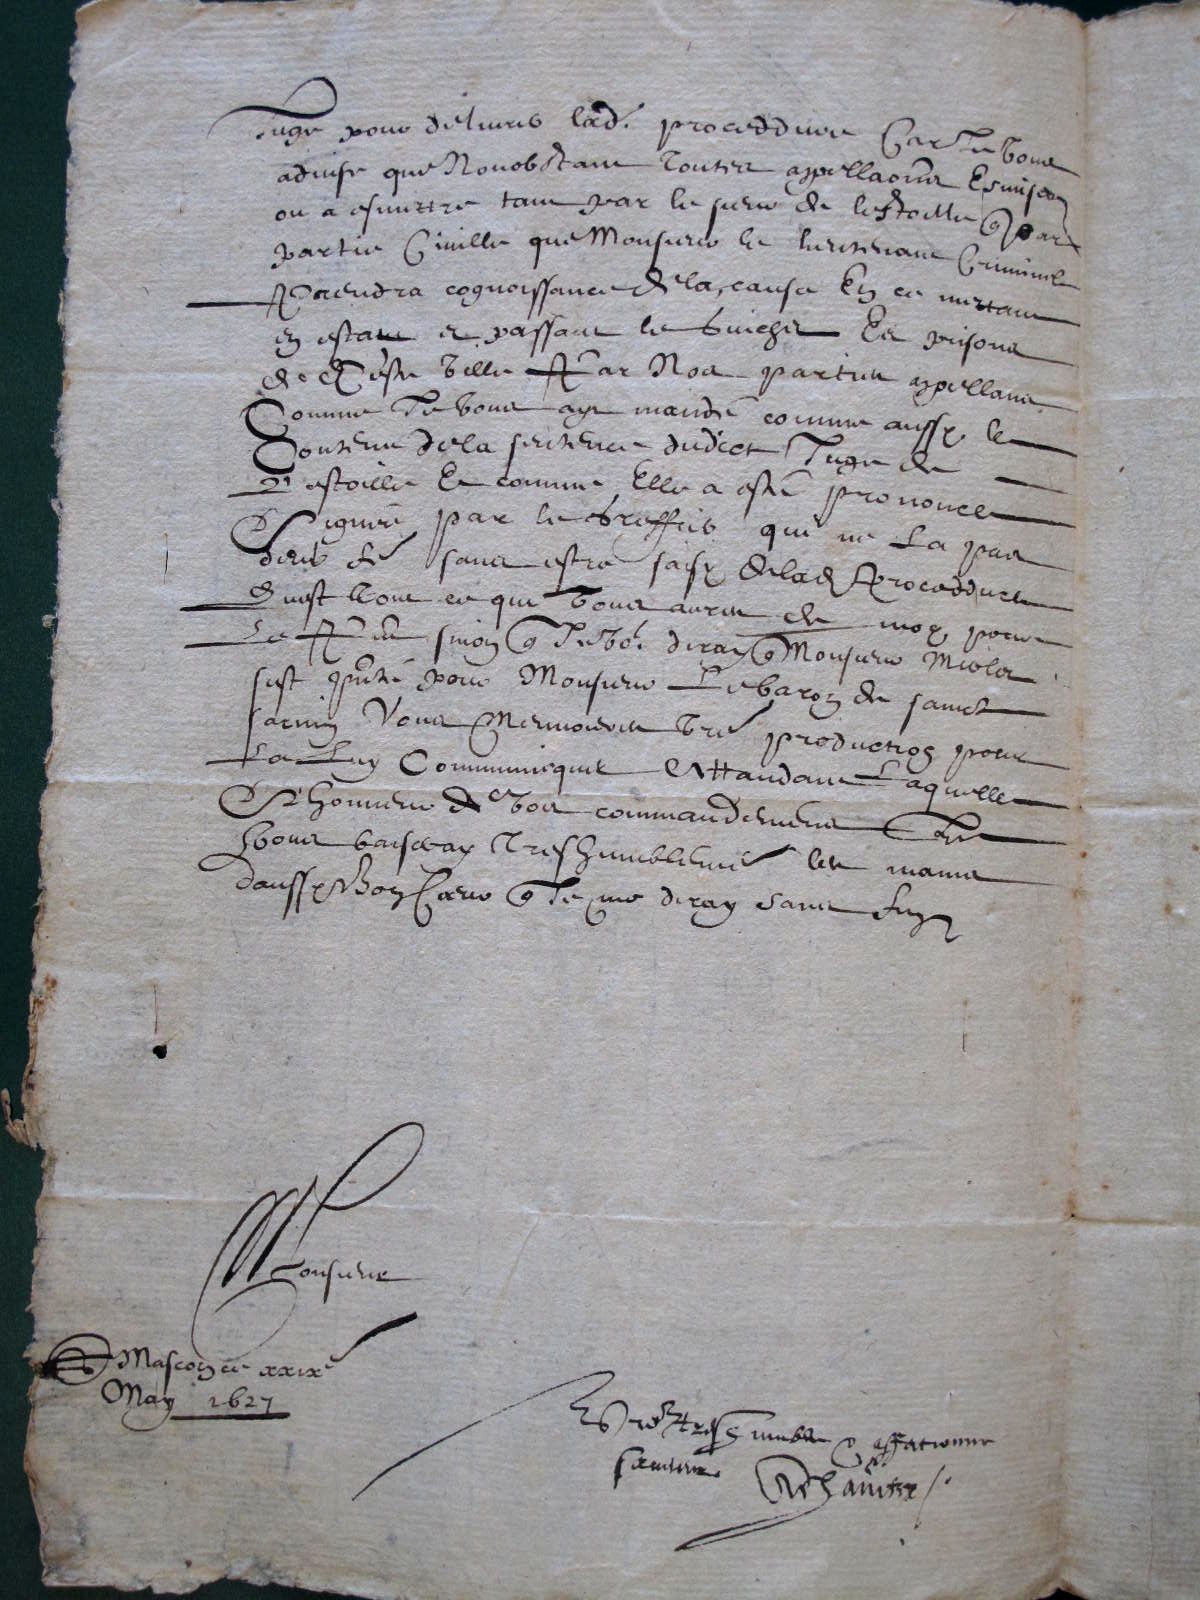 Juge pour delivres lad. proceddure Car Je vous
advise que Nonobstant toutes appellaons Esmises
ou a esmettre tant par le sieur de lestoille
partie Civille que Monsieur le lieutenant Criminel
Prendra cognoissance de la cause En ce mettant
en estat et passant le Guichet Es prisons
de ville Par Nos parties appellans
Comme Je vous ay mandé comme aussy le
Contenu de la sentence dudict Juge de
Lestoille Et comme Elle a esté prononcee
Signée par le Greffier qui ne La pas
sans estre saisy de lad Proceddure
Quest tout ce que vous aures de moy pour
le sinon q Je vo. diray q Monsieur
sest pnté pour Monsieur Le baron de sainct
Vous vre production pour
La Luy Communicquer Attandant Laquelle
Et Lhonneur de vos commandemens Je
Vous baiseray Treshumblement les mains
daussy Bon Cœur q Je me diray sans fin
Monsieur
A Mascon ce xxixe
May 1627
Vre treshumble & affectionné
serviteur